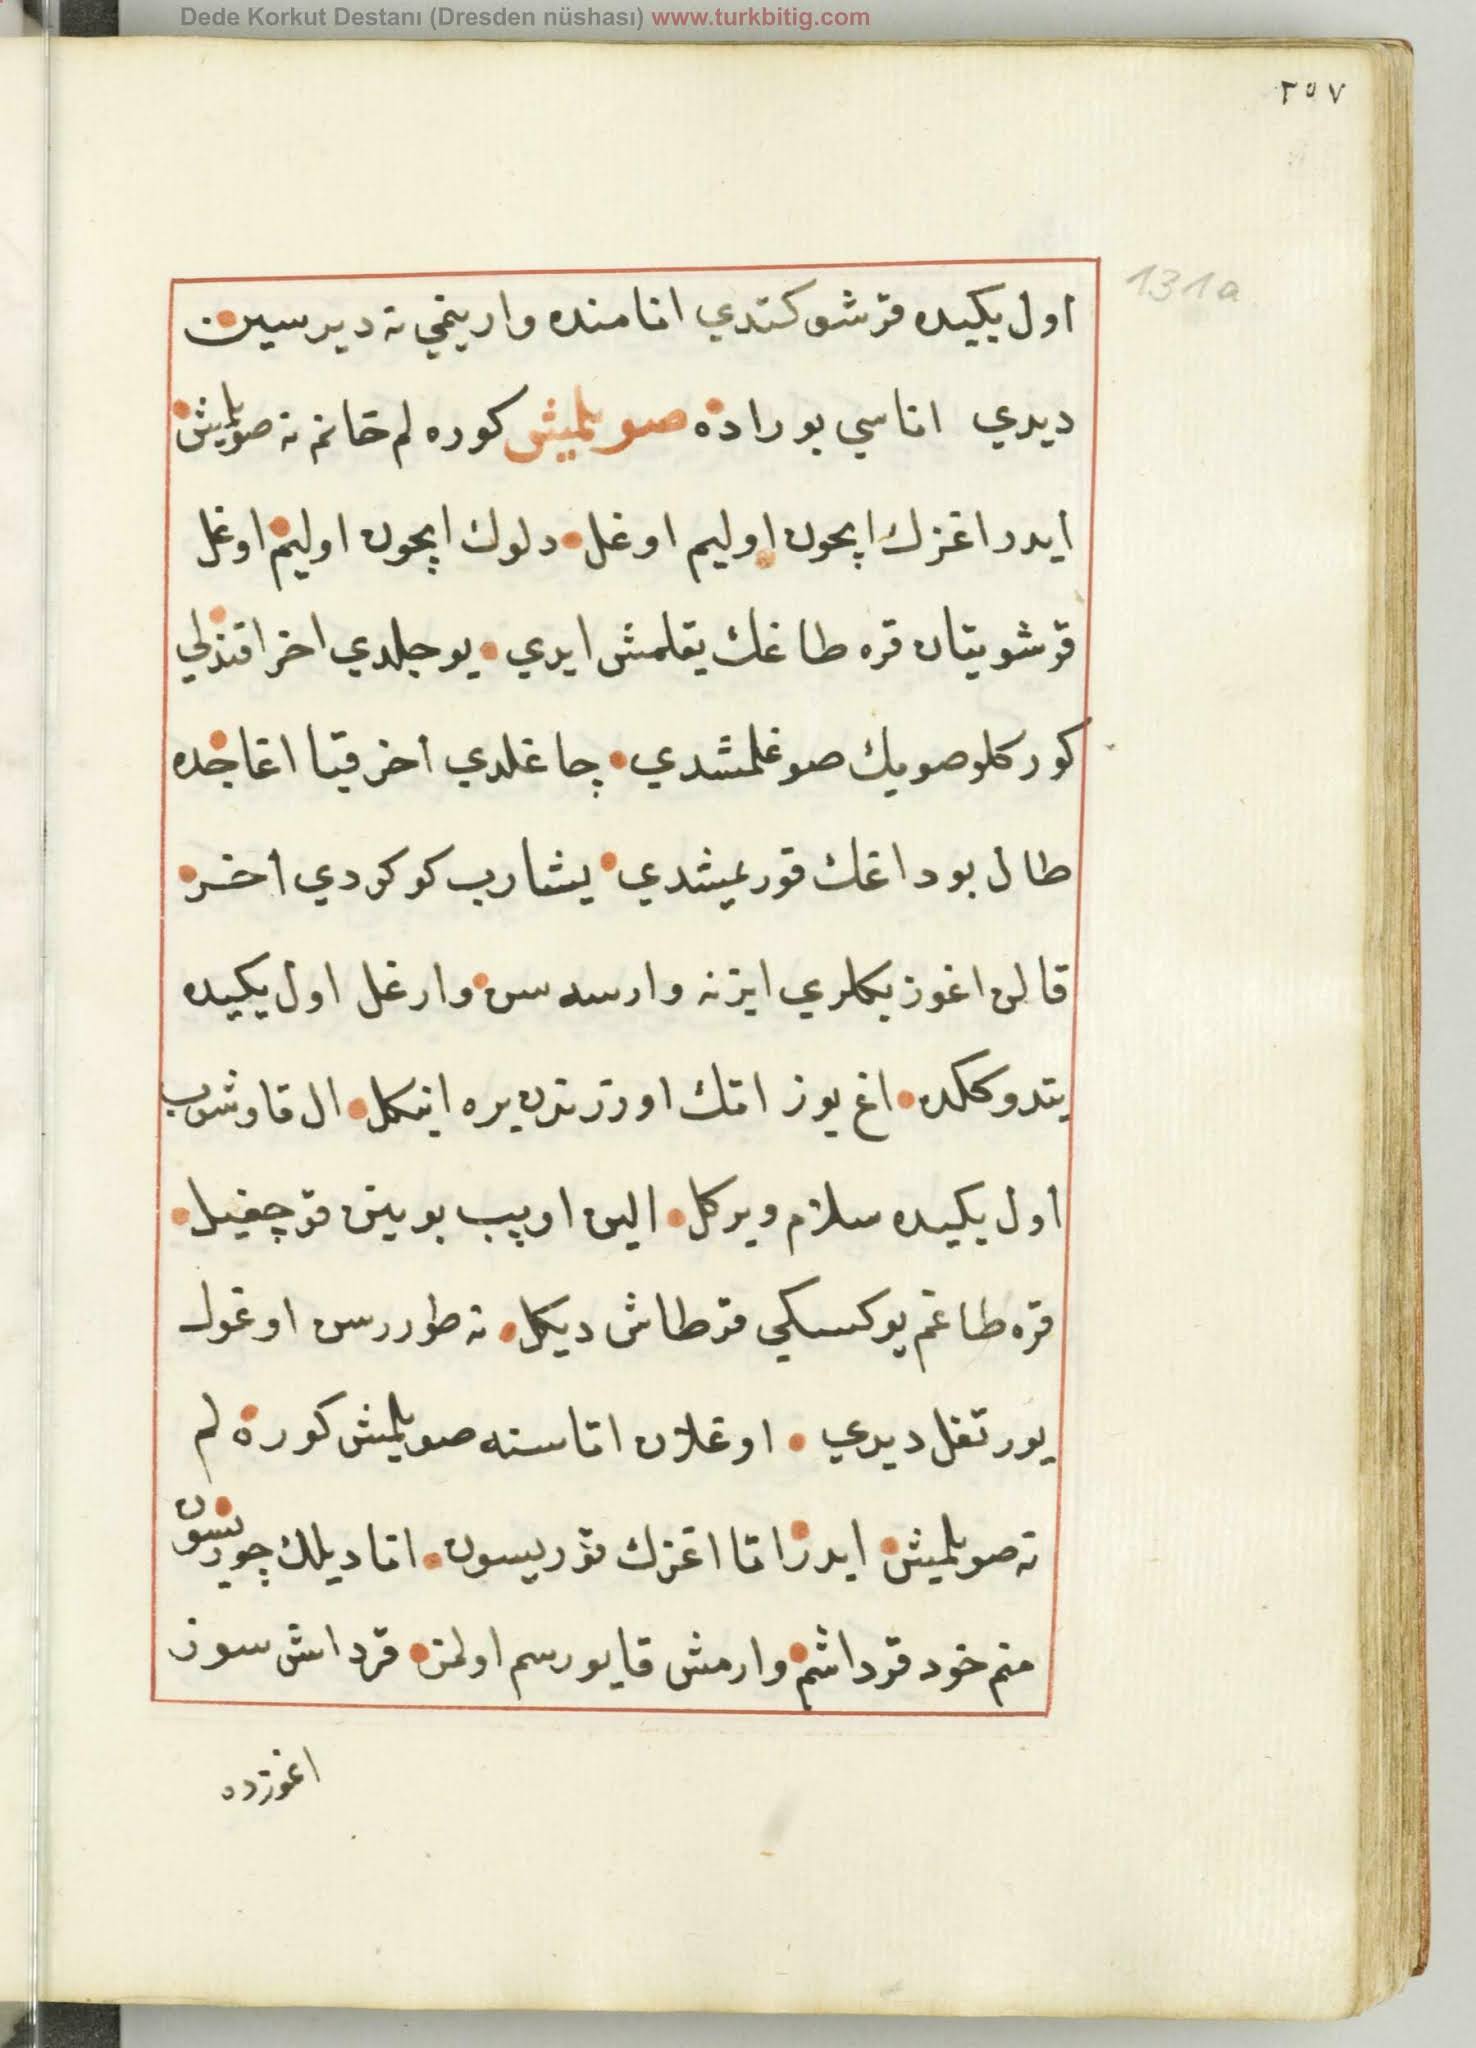 Dede Korkut Destanı (Dresden nüshası) www.turkbitig.com
٢٥٧
131a
اول یکیده قرشو کتدي انا منده وارینمي نه دیرسین
دیدي اناسي بوراده صویلمیش کوره لم خانم نه صویلمیش
ایدر اغزك ایچون اولیم اوغل دلوك ایچون اولیم اوغل
قرشو یتان قره طاغك یقلمش ایدي یوجلدي اخر
کورکلو صویك صوغلمشدي چاغلدي اخر قبا اغاجده
طال بوداغك قوریمشدي یشارب کوکردي اخر
قالن اغوز بکلري ایزنه وارسه سن وارغل اول یکیده
یتدوککده اغ بوز اتك اوزرندن یره اینکل ال قاوشوب
اول یکیده سلام ویرکل الین اوپب بوینن قوچغیل
قره طاغم یوکسکي قرطاش دیکل نه طوررسن اوغول
یورتغل دیدي اوغلان اناسنه صویلمش کوره لم
نه صویلمیش ایدر انا اغزك قوریسون انا دیلك چوریسون
منم خود قرداشم وارمش قایورسم اولمز قرداش سوز
اغوزده